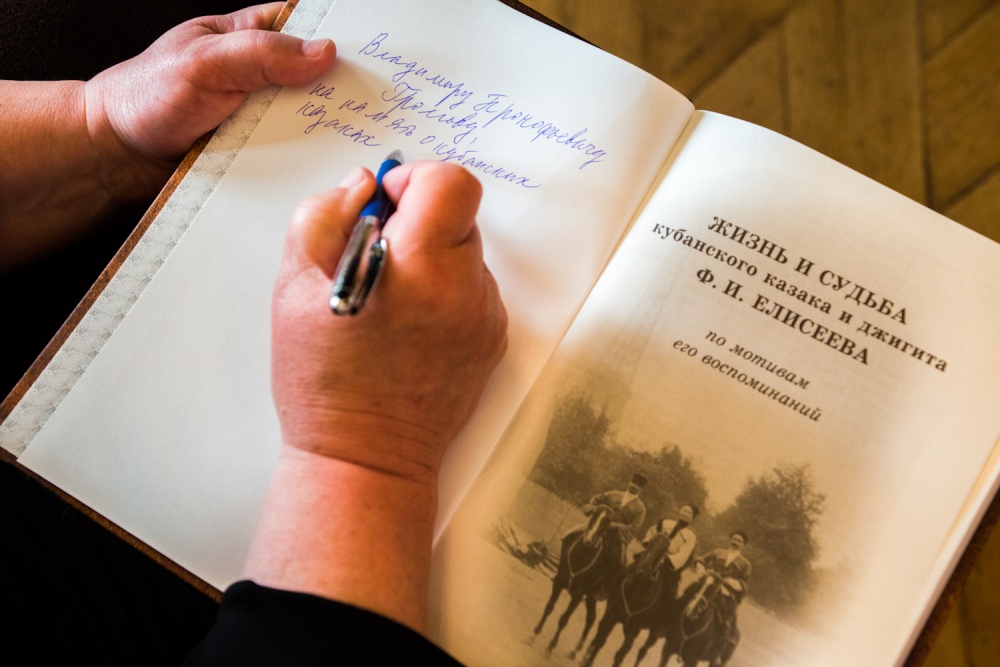 Владимиру Прокофьевичу
Громову,
на память о кубанских
казаках
ЖИЗНЬ И СУДЬБА
кубанского казака и джигита
Ф. И. ЕЛИСЕЕВА
по мотивам
его воспоминаний